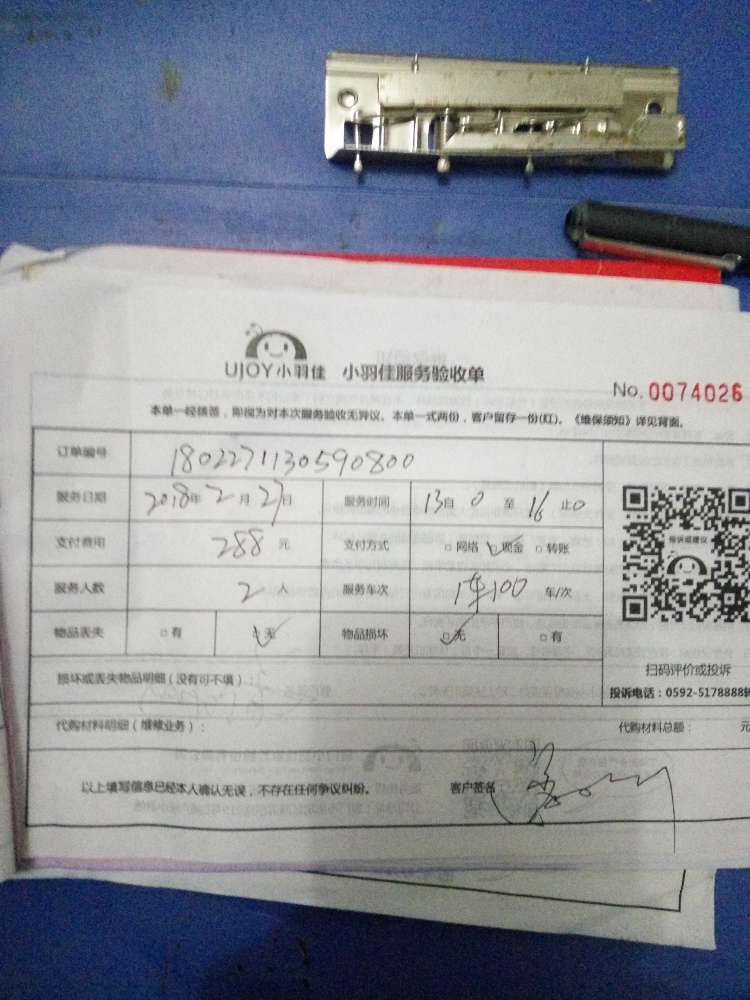 UJOY小羽佳 小羽佳服务验收单
No. 0074026
本单一经签签，即视为对本次服务验收无异议。本单一式两份，客户留存一份(红)。《维保须知》详见背面。
订单编号 1802271130590800
服务日期 2018年2月27日 服务时间 13自0至16止0
支付费用 288元 支付方式 □网络 ☑现金 □转账
服务人数 2人 服务车次 1车100 车/次
物品丢失 □有 ☑无 物品损坏 ☑无 □有
投诉或建议
扫码评价或投诉
投诉电话：0592-5178888转
损坏或丢失物品明细（没有可不填）：
代购材料明细（维修业务）： 代购材料总额： 元
以上填写信息已经本人确认无误，不存在任何争议纠纷。 客户签名